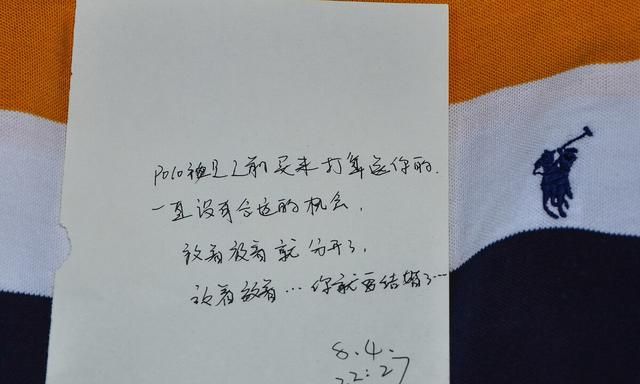 Polo衫是之前买来打算送你的.
一直没有合适的机会.
放着放着就分开了.
放着放着…你就要结婚了…
8.4.
22:27